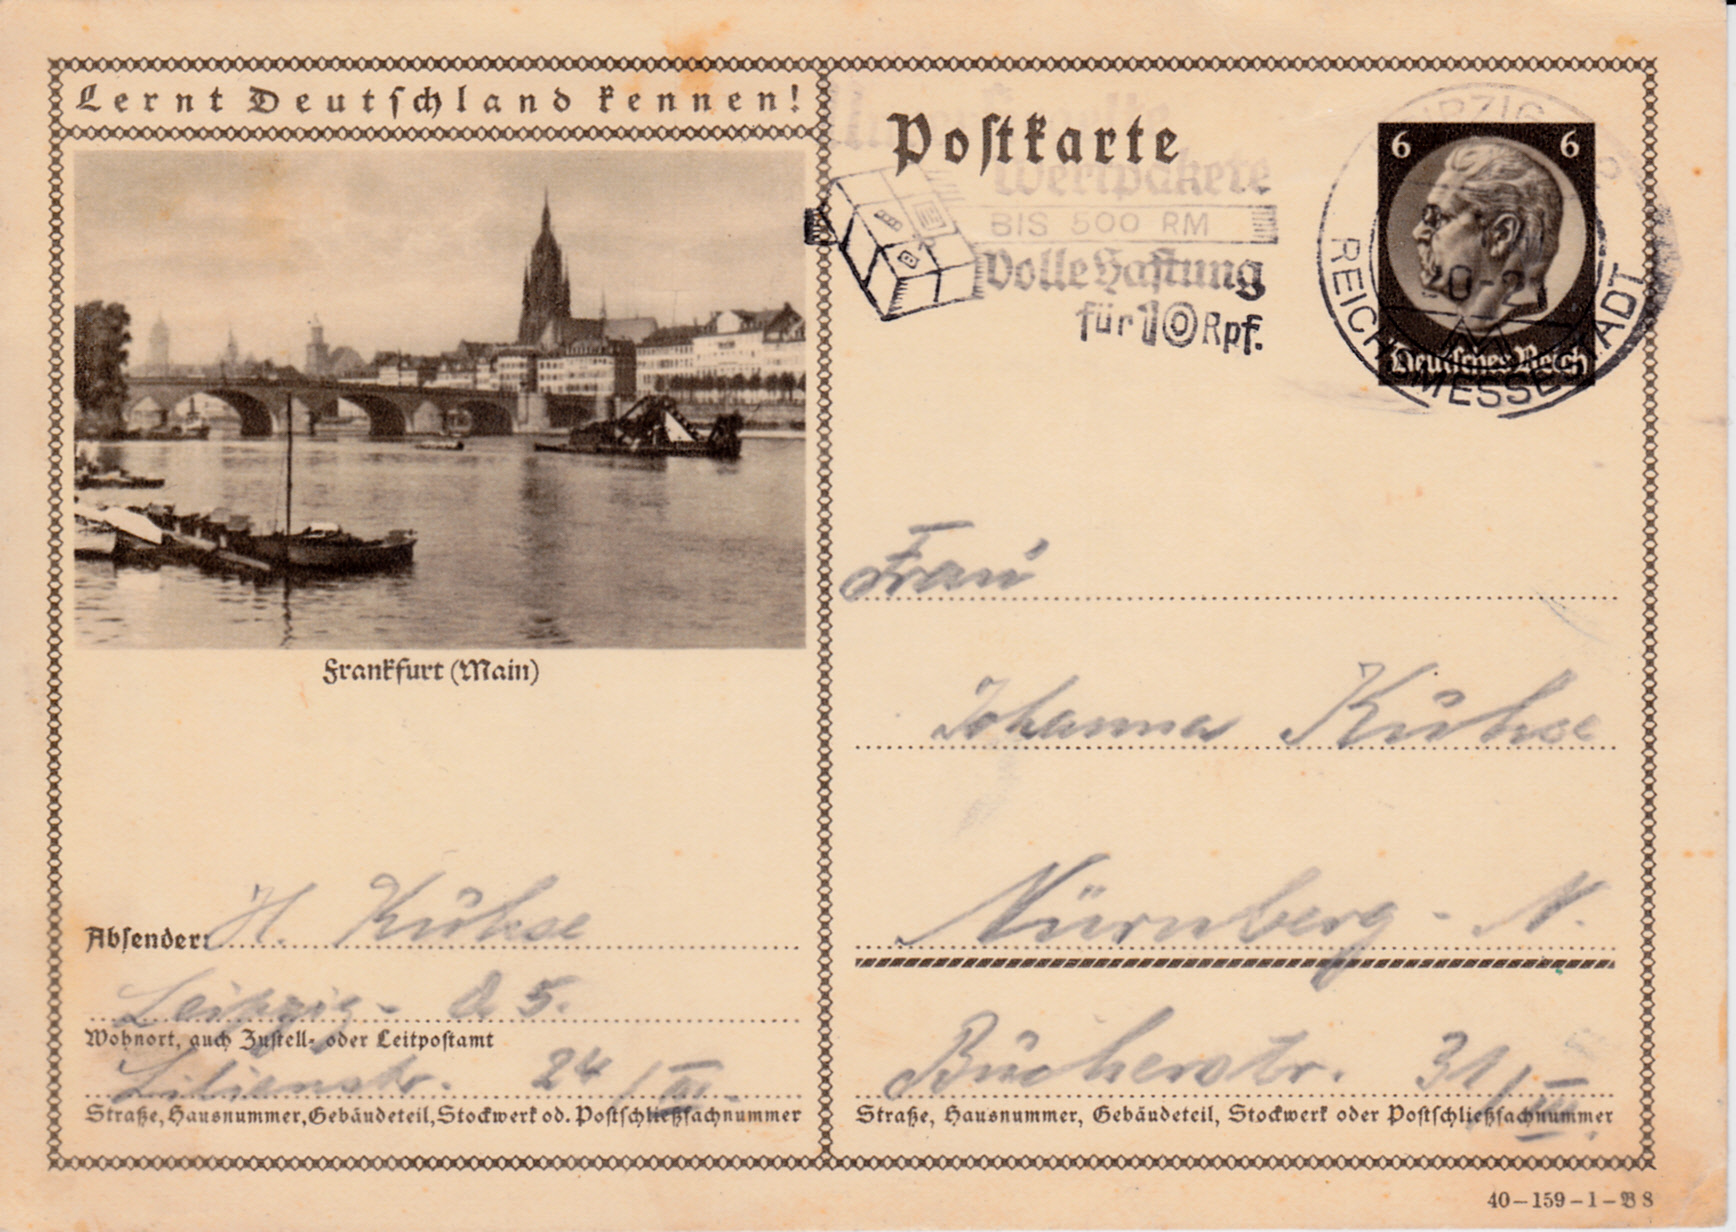 Lernt Deutschland kennen!
Frankfurt (Main)
Absender: H. Kühse
Leipzig - O 5.
Wohnort, auch Zustell- oder Leitpostamt
Lilienstr. 24 / III.
Straße, Hausnummer, Gebäudeteil, Stockwerk od. Postschließfachnummer
Postkarte
Wertpakete
BIS 500 RM
Volle Haftung
für 10 Rpf.
6 6
Deutsches Reich
REICHSMESSESTADT
Frau
Johanna Kühse
Nürnberg - N.
Bucherstr. 31 / III.
Straße, Hausnummer, Gebäudeteil, Stockwerk oder Postschließfachnummer
40–159–1–B 8